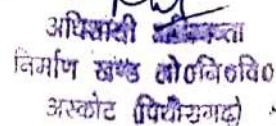 अधिशासी अभियन्ता
निर्माण खण्ड लो०वि०वि०
अस्कोट (पिथौरागढ़)